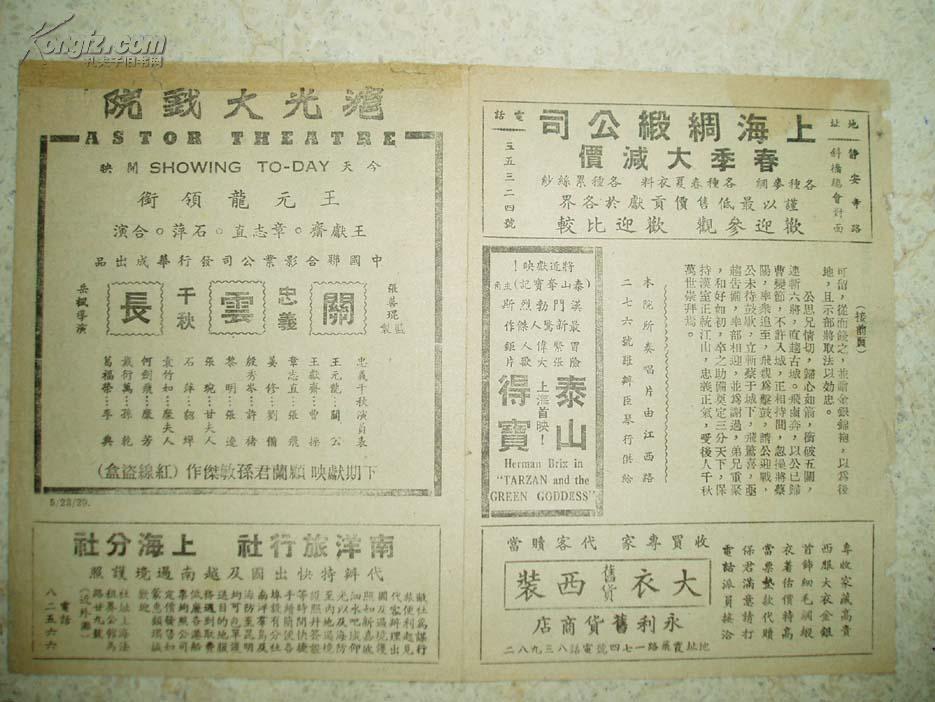 Kongfz.com
孔夫子旧书网
地址
靜安寺路
斜橋總會對面
上海綢緞公司
春季大減價
各種麥綢 各種春夏衣料 各種累絲紗
謹以最低售價貢獻於各界
歡迎參觀 歡迎比較
電話
三五三二四號
(接前頁)
可留,從而餞之,並贈金銀錦袍,以為後
地,且示部將取法以効忠。
公思兄情切,歸心如箭,衝破五關,
連斬六將,直趨古城。飛鹵莽,以公已歸
曹變節,不許入城,正相持間,忽操將蔡
陽,率衆追至,飛伐爲擊鼓,請公迎戰,
公未待鼓歇,立斬蔡于城下,飛驚喜,亟
趨告備,率部相迎,並爲謝過,弟兄重聚
,和好如初,卒之助備奠定三分天下,保
持漢室正統江山,忠義正氣,受後人千秋
萬世崇拜焉。
本院所奏唱片由江西路
二七六號班辦臣琴行供給
將近獻映!
(泰山奪寶記)主角
漢門勃烈斯
最新驚人傑作
冒險緊張偉大鉅片
上海首映!
泰山
得寶
Herman Brix in
"TARZAN and the
GREEN GODDESS"
收買專家 代客贖當
大衣 舊貨 西裝
永利舊貨商店
地址霞飛路一七四號電話八三九八二
專收家藏高貴
西服大衣金銀
首飾細毛綢緞
衣着估價特高
當票墊款代贖
保君滿意請打
電話派員接洽
滬光大戲院
ASTOR THEATRE
今天 SHOWING TO-DAY 開映
王元龍領銜
王獻齋。章志直。石萍。合演
中國聯合影業公司發行華成出品
張善琨監製
關
忠義
雲
千秋
長
岳楓導演
忠義千秋演員表
王元龍…關公
王獻齋…曹操
章志直…張飛
姜修…劉備
殷秀岑…許褚
黎明…張遼
張琬…甘夫人
石萍…貂蟬
袁竹如…糜夫人
何劍飛…糜芳
戴衍萬…孫乾
葛福榮…李典
下期獻映 顧蘭君孫敏傑作(紅線盜盒)
5/23/29.
南洋旅行社 上海分社
代辦特快出國及越南過境護照
電話
八二五六六